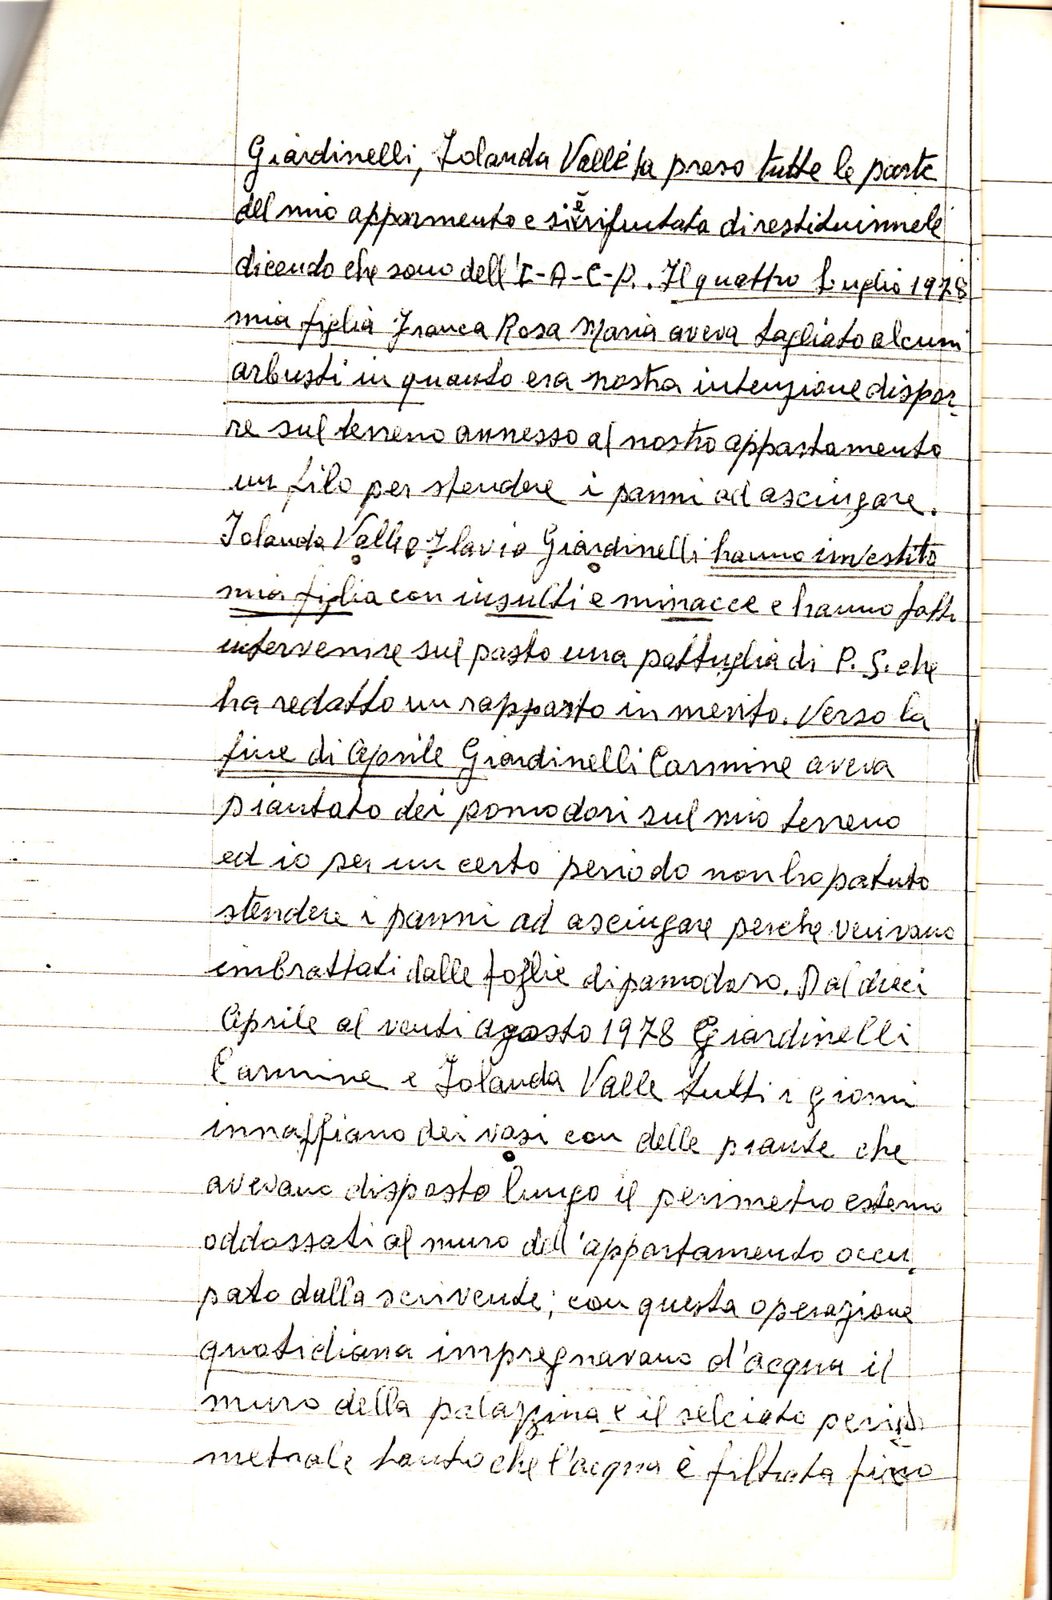 Giardinelli, Iolanda Valle ha preso tutte le porte
del mio apparmento e si è rifiutata di restituirmele
dicendo che sono dell'I-A-C-P.. Il quattro Luglio 1978
mia figlia Franca Rosa Maria aveva tagliato alcuni
arbusti in quanto era nostra intenzione dispor-
re sul terreno annesso al nostro appartamento
un filo per stendere i panni ad asciugare.
Iolanda Valle e Flavio Giardinelli hanno investito
mia figlia con insulti e minacce e hanno fatto
intervenire sul posto una pattuglia di P. S. che
ha redatto un rapporto in merito. Verso la
fine di Aprile Giardinelli Carmine aveva
piantato dei pomodori sul mio terreno
ed io per un certo periodo non ho potuto
stendere i panni ad asciugare perche venivano
imbrattati dalle foglie di pomodoro. Dal dieci
Aprile al venti agosto 1978 Giardinelli
Carmine e Iolanda Valle tutti i giorni
innaffiano dei vasi con delle piante che
avevano disposto lungo il perimetro esterno
addossati al muro dell'appartamento occu-
pato dalla scrivente; con questa operazione
quotidiana impregnavano d'acqua il
muro della palazzina e il selciato peri-
metrale tanto che l'acqua è filtrata fino